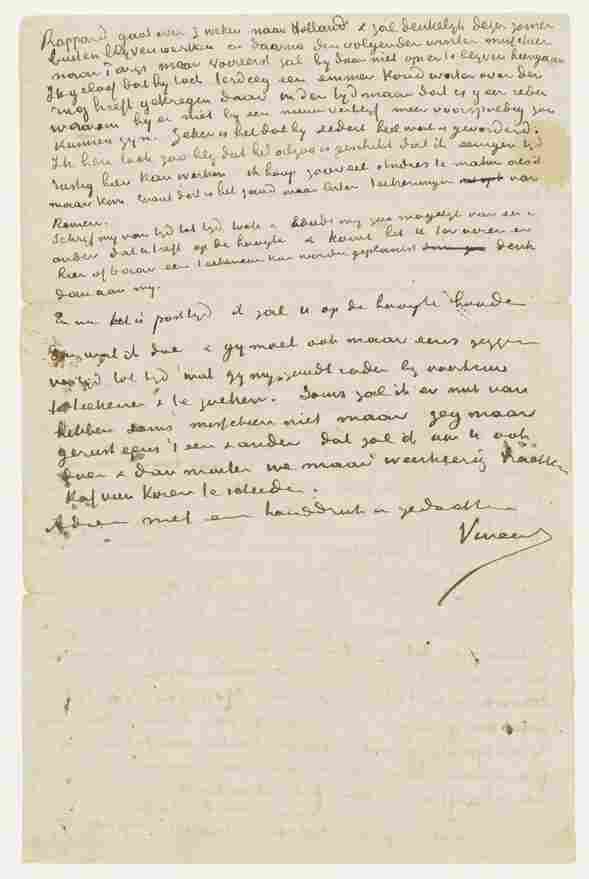 Rappard gaat over 3 weken naar Holland & zal denkelijk dezen zomer
buiten blijven werken en daarna den volgenden winter misschien
naar Parijs maar vooreerst zal hij daar niet op en te blijven heengaan
Ik geloof dat hij toch terdeeg een emmer koud water over den
rug heeft gekregen daar in der tijd maar dat is een reden
waarom hij er niet bij een nieuw verblijf meer voorspoedig zou
kunnen zijn. Zeker is het dat hij sedert heel wat is gevorderd.
Ik ben toch zoo blij dat het alzoo is geschikt dat ik eenigen tijd
rustig hier kan werken ik hoop zooveel studies te maken als ik
maar kan want dat is het zaad waar later teekeningen van
komen.
Schrijf mij van tijd tot tijd toch & houd mij zoo mogelijk van een &
ander dat U treft op de hoogte & komt het U ter ooren er
hier of daar een teekenaar kan worden geplaatst denk
dan aan mij.
En nu het is posttijd ik zal U op de hoogte houden
van wat ik doe & gij moet ook maar eens zeggen
van tijd tot tijd wat gij mij zoudt raden bij voorkeur
te teekenen & te zoeken. Soms zal ik er nut van
hebben soms misschien niet maar zeg maar
gerust eens 't een & ander dat zal ik aan U ook
doen & dan moeten we maar weerkeerig trachten
kaf van koren te scheiden.
Adieu met een handdruk in gedachten
Vincent